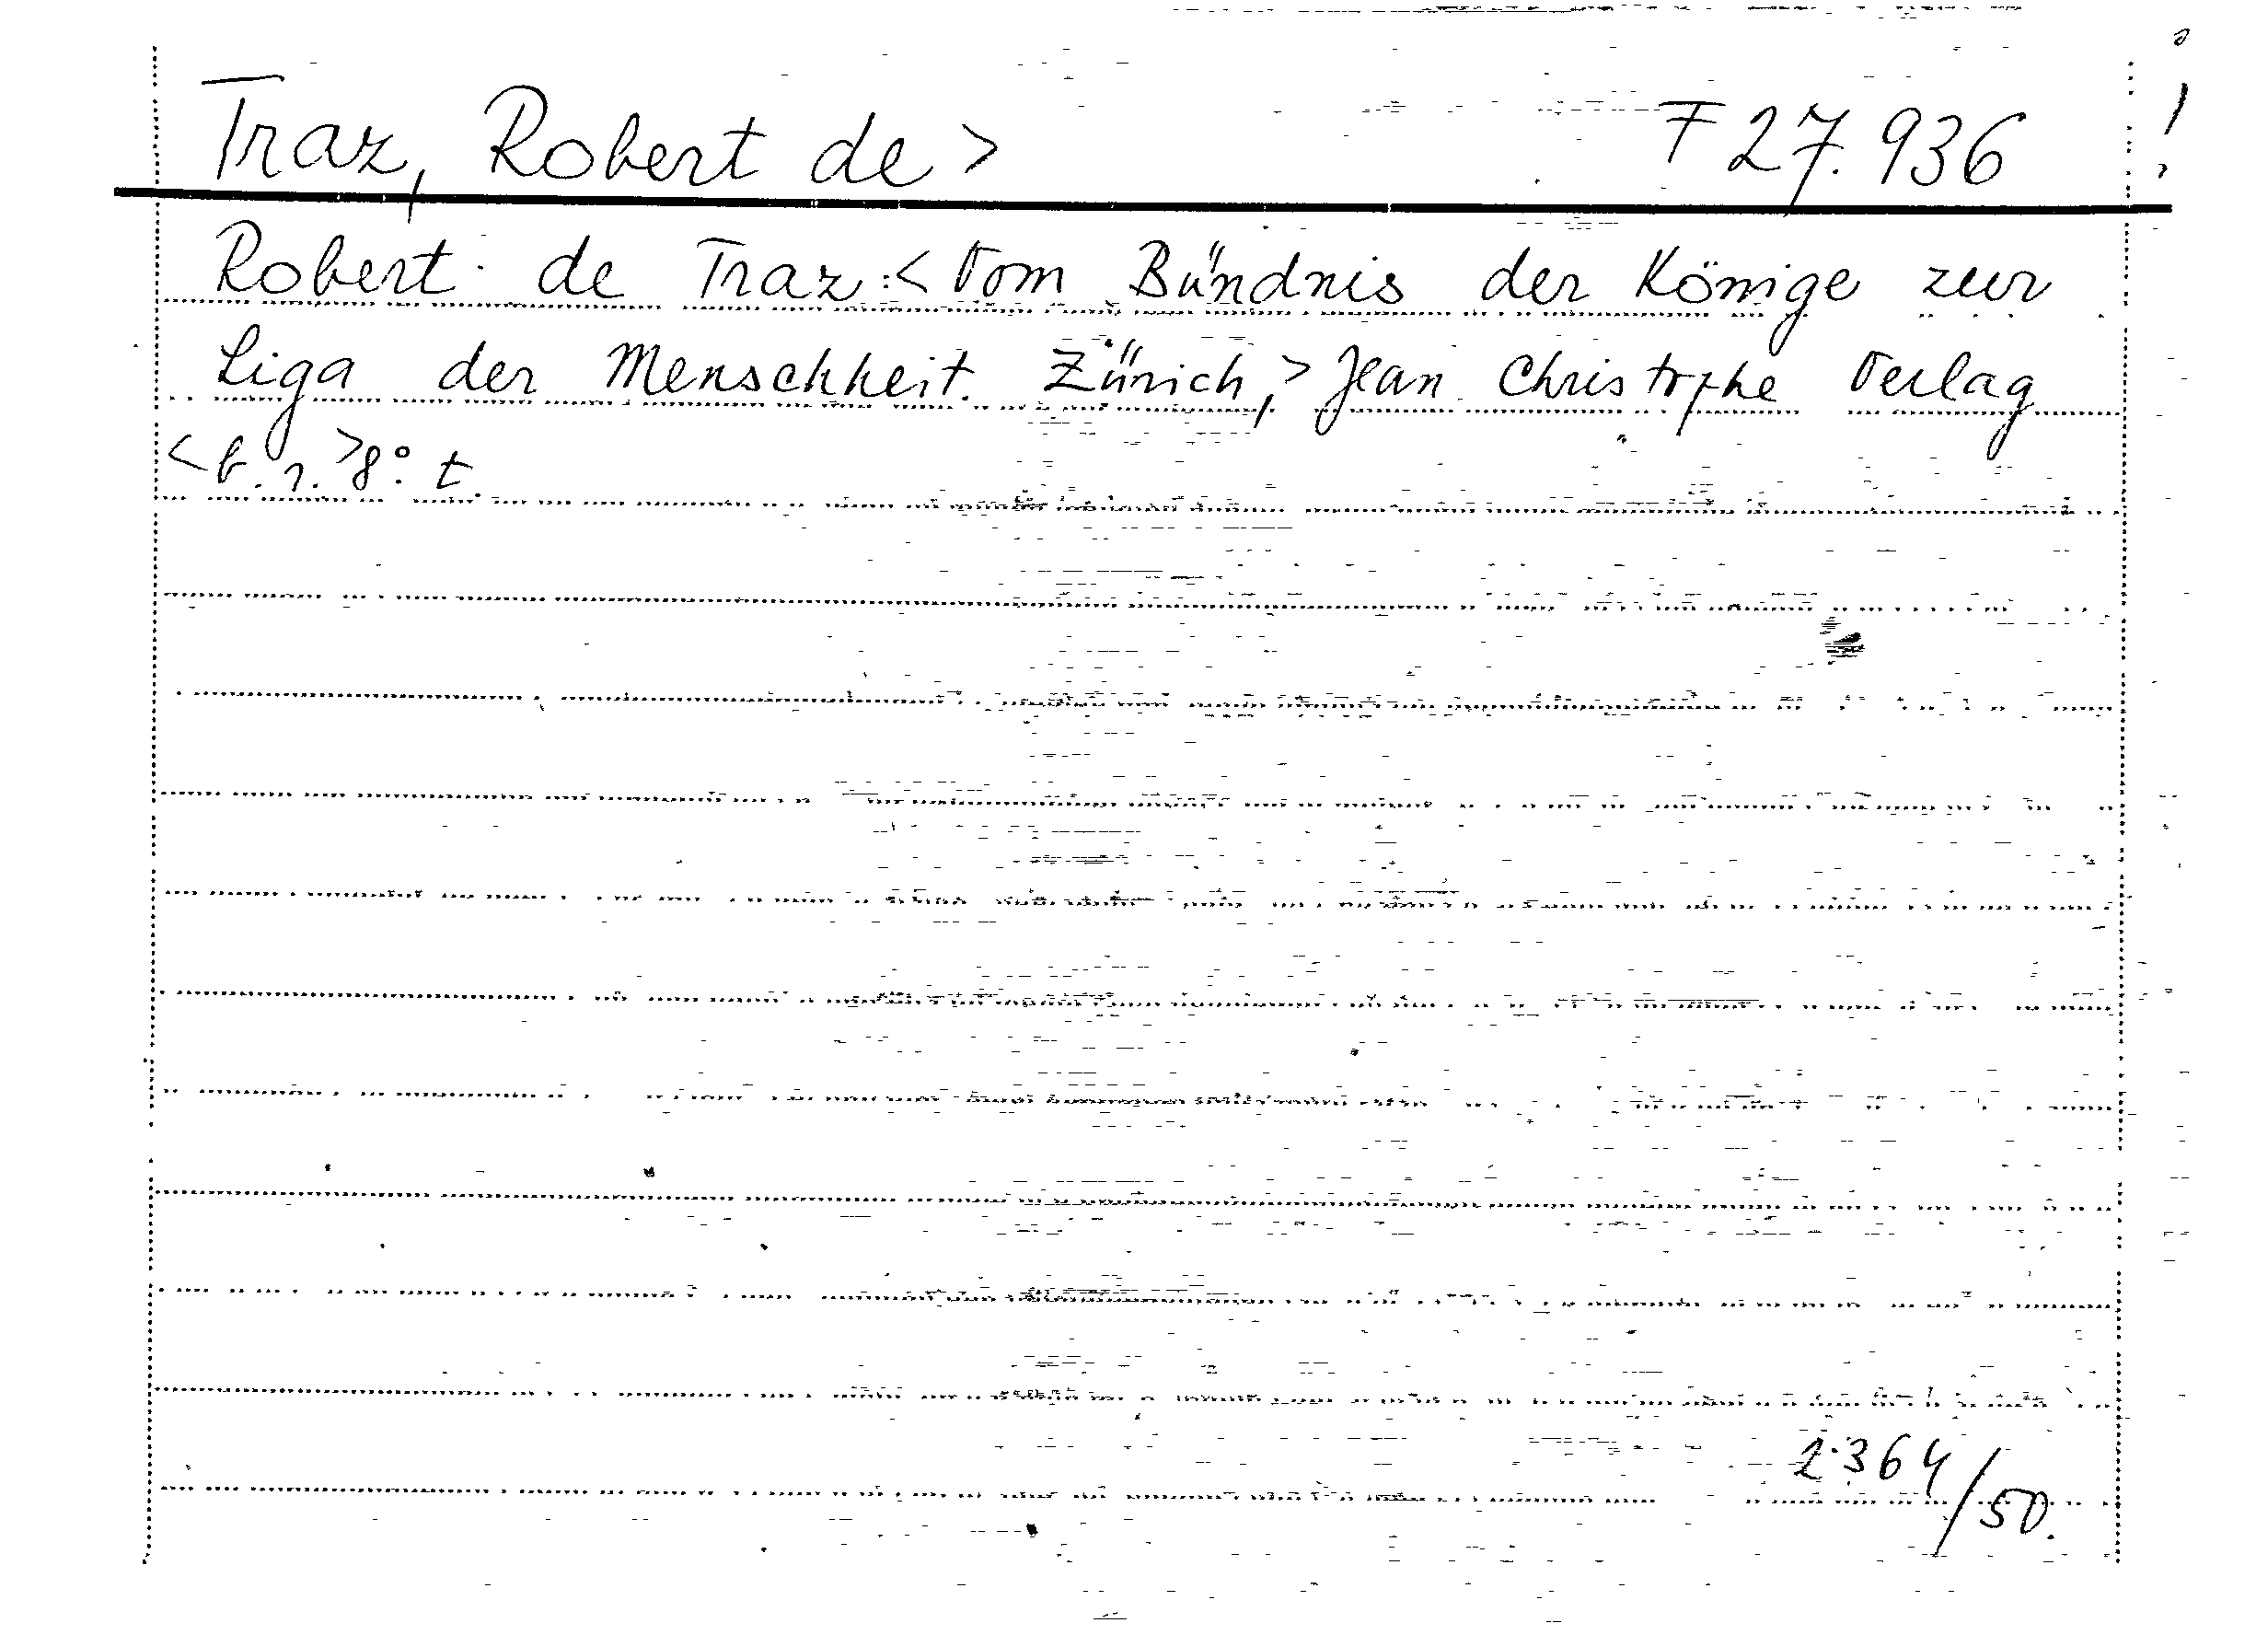 Traz, Robert de > F 27.936 !
Robert de Traz: < Vom Bündnis der Könige zur
Liga der Menschheit. Zürich, > Jean Christophe Verlag
< b. r. > 8° t.
2364/50.